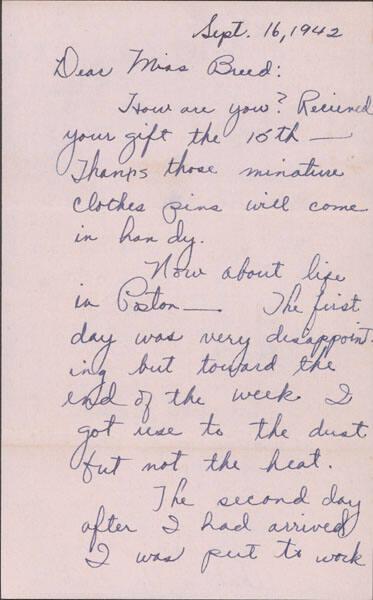 Sept. 16, 1942
Dear Miss Breed:
How are you? Recieved
your gift the 15th —
Thanks those minature
clothes pins will come
in handy.
Now about life
in Poston — The first
day was very disappoint-
ing but toward the
end of the week I
got use to the dust
but not the heat.
The second day
after I had arrived
I was put to work